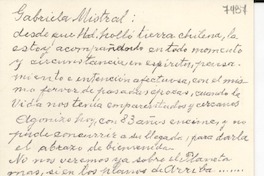 7487
Gabriela Mistral:
desde que Ud. holló tierra chilena, la
estoy acompañando en todo momento
y circunstancia en espíritu, pensa-
miento e intención afectuosa, con el mis
mo fervor de pasadas épocas, cuando la
Vida nos tenía emparentados y cercanos
Agonizo hoy, con 83 años encima, y no
pude concurrir a su llegada, para darla
el abrazo de bienvenida.
No nos veremos ya sobre el Planeta
mas, sí en los planos de Arriba .......